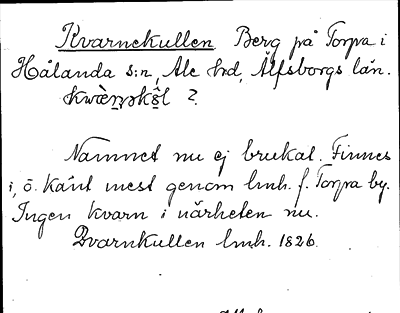 Kvarnekullen Berg på Torpa i
Hålanda s:n, Ale hd, Älfsborgs län.
?
Namnet nu ej brukat. Finnes
i, o. känt mest genom lmh. f. Torpa by.
Ingen kvarn i närheten nu.
Qvarnkullen lmh. 1826.